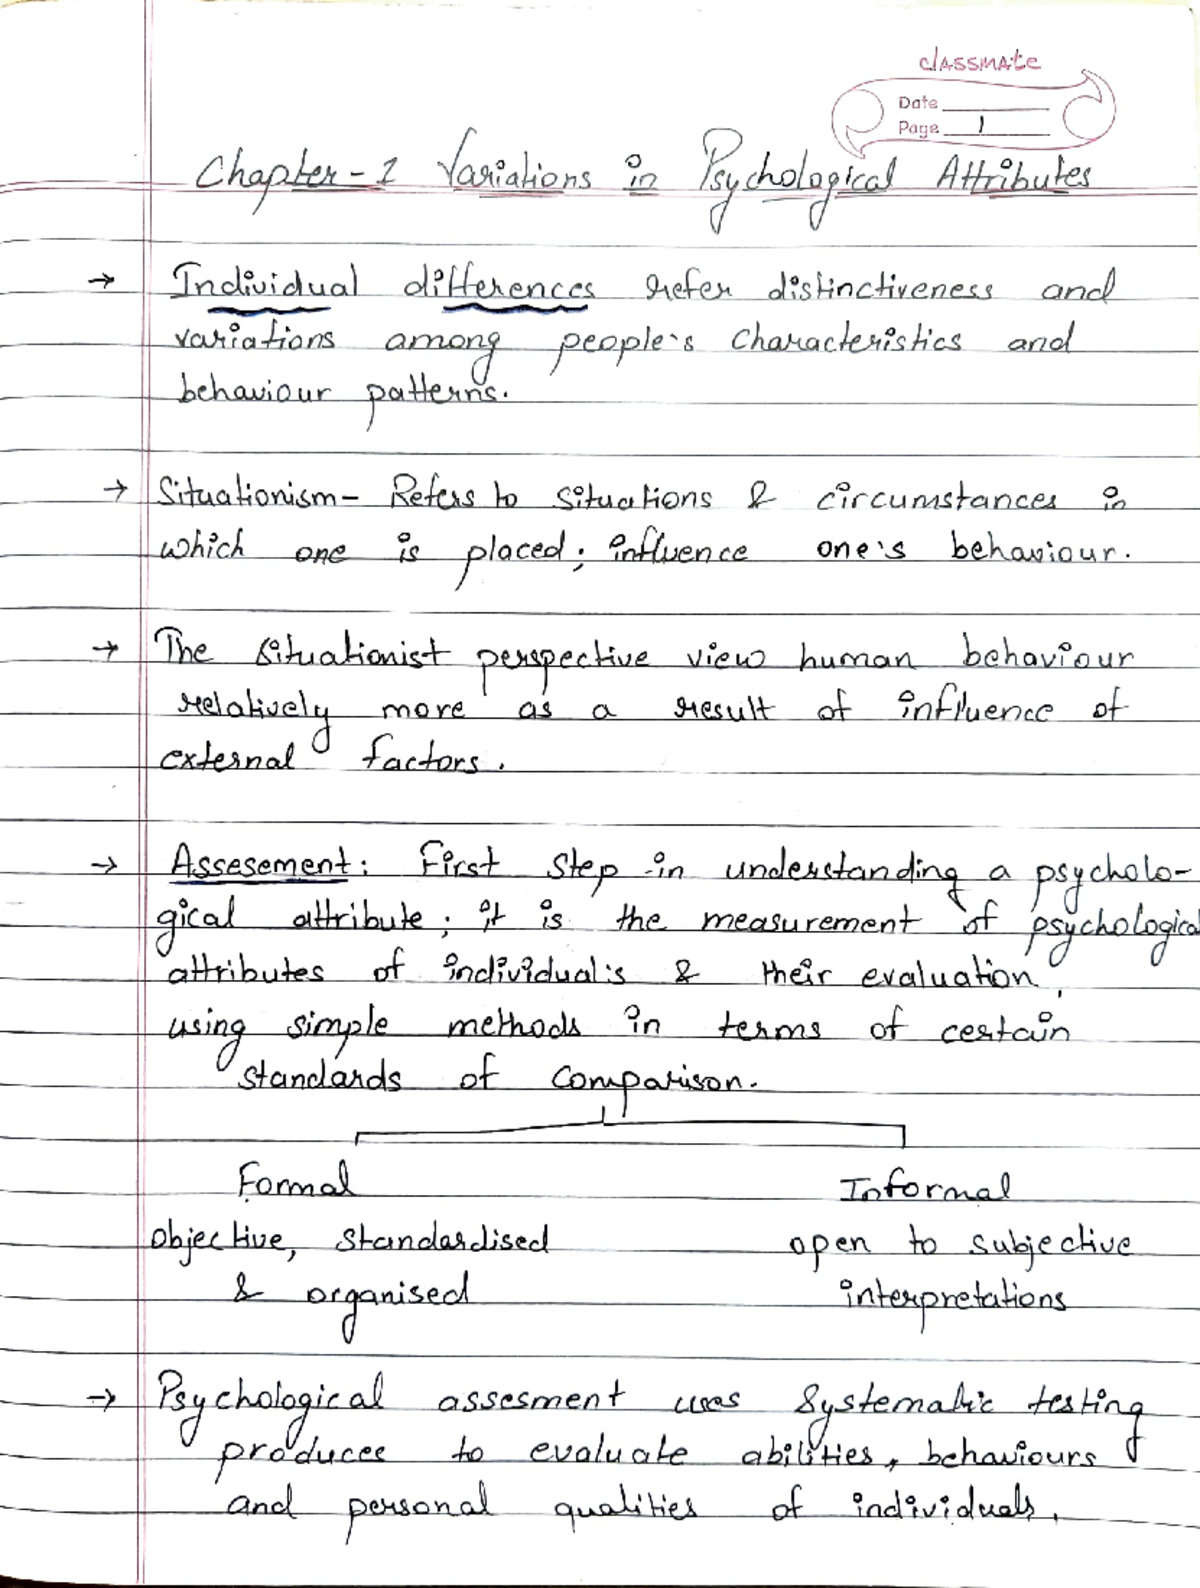 classmate
Date
Page 1
Chapter-1 Variations in Psychological Attributes
→ Individual differences refer distinctiveness and
variations among people's characteristics and
behaviour patterns.
→ Situationism- Refers to situations & circumstances in
which one is placed; influence one's behaviour.
→ The situationist perspective view human behaviour
relatively more as a result of influence of
external factors.
→ Assesement: First step in understanding a psycholo-
gical attribute; it is the measurement of psychological
attributes of individual's & their evaluation,
using simple methods in terms of certain
standards of comparison.
Formal Informal
objective, standardised open to subjective
& organised interpretations
→ Psychological assesment uses systematic testing
produces to evaluate abilities, behaviours
and personal qualities of individuals,